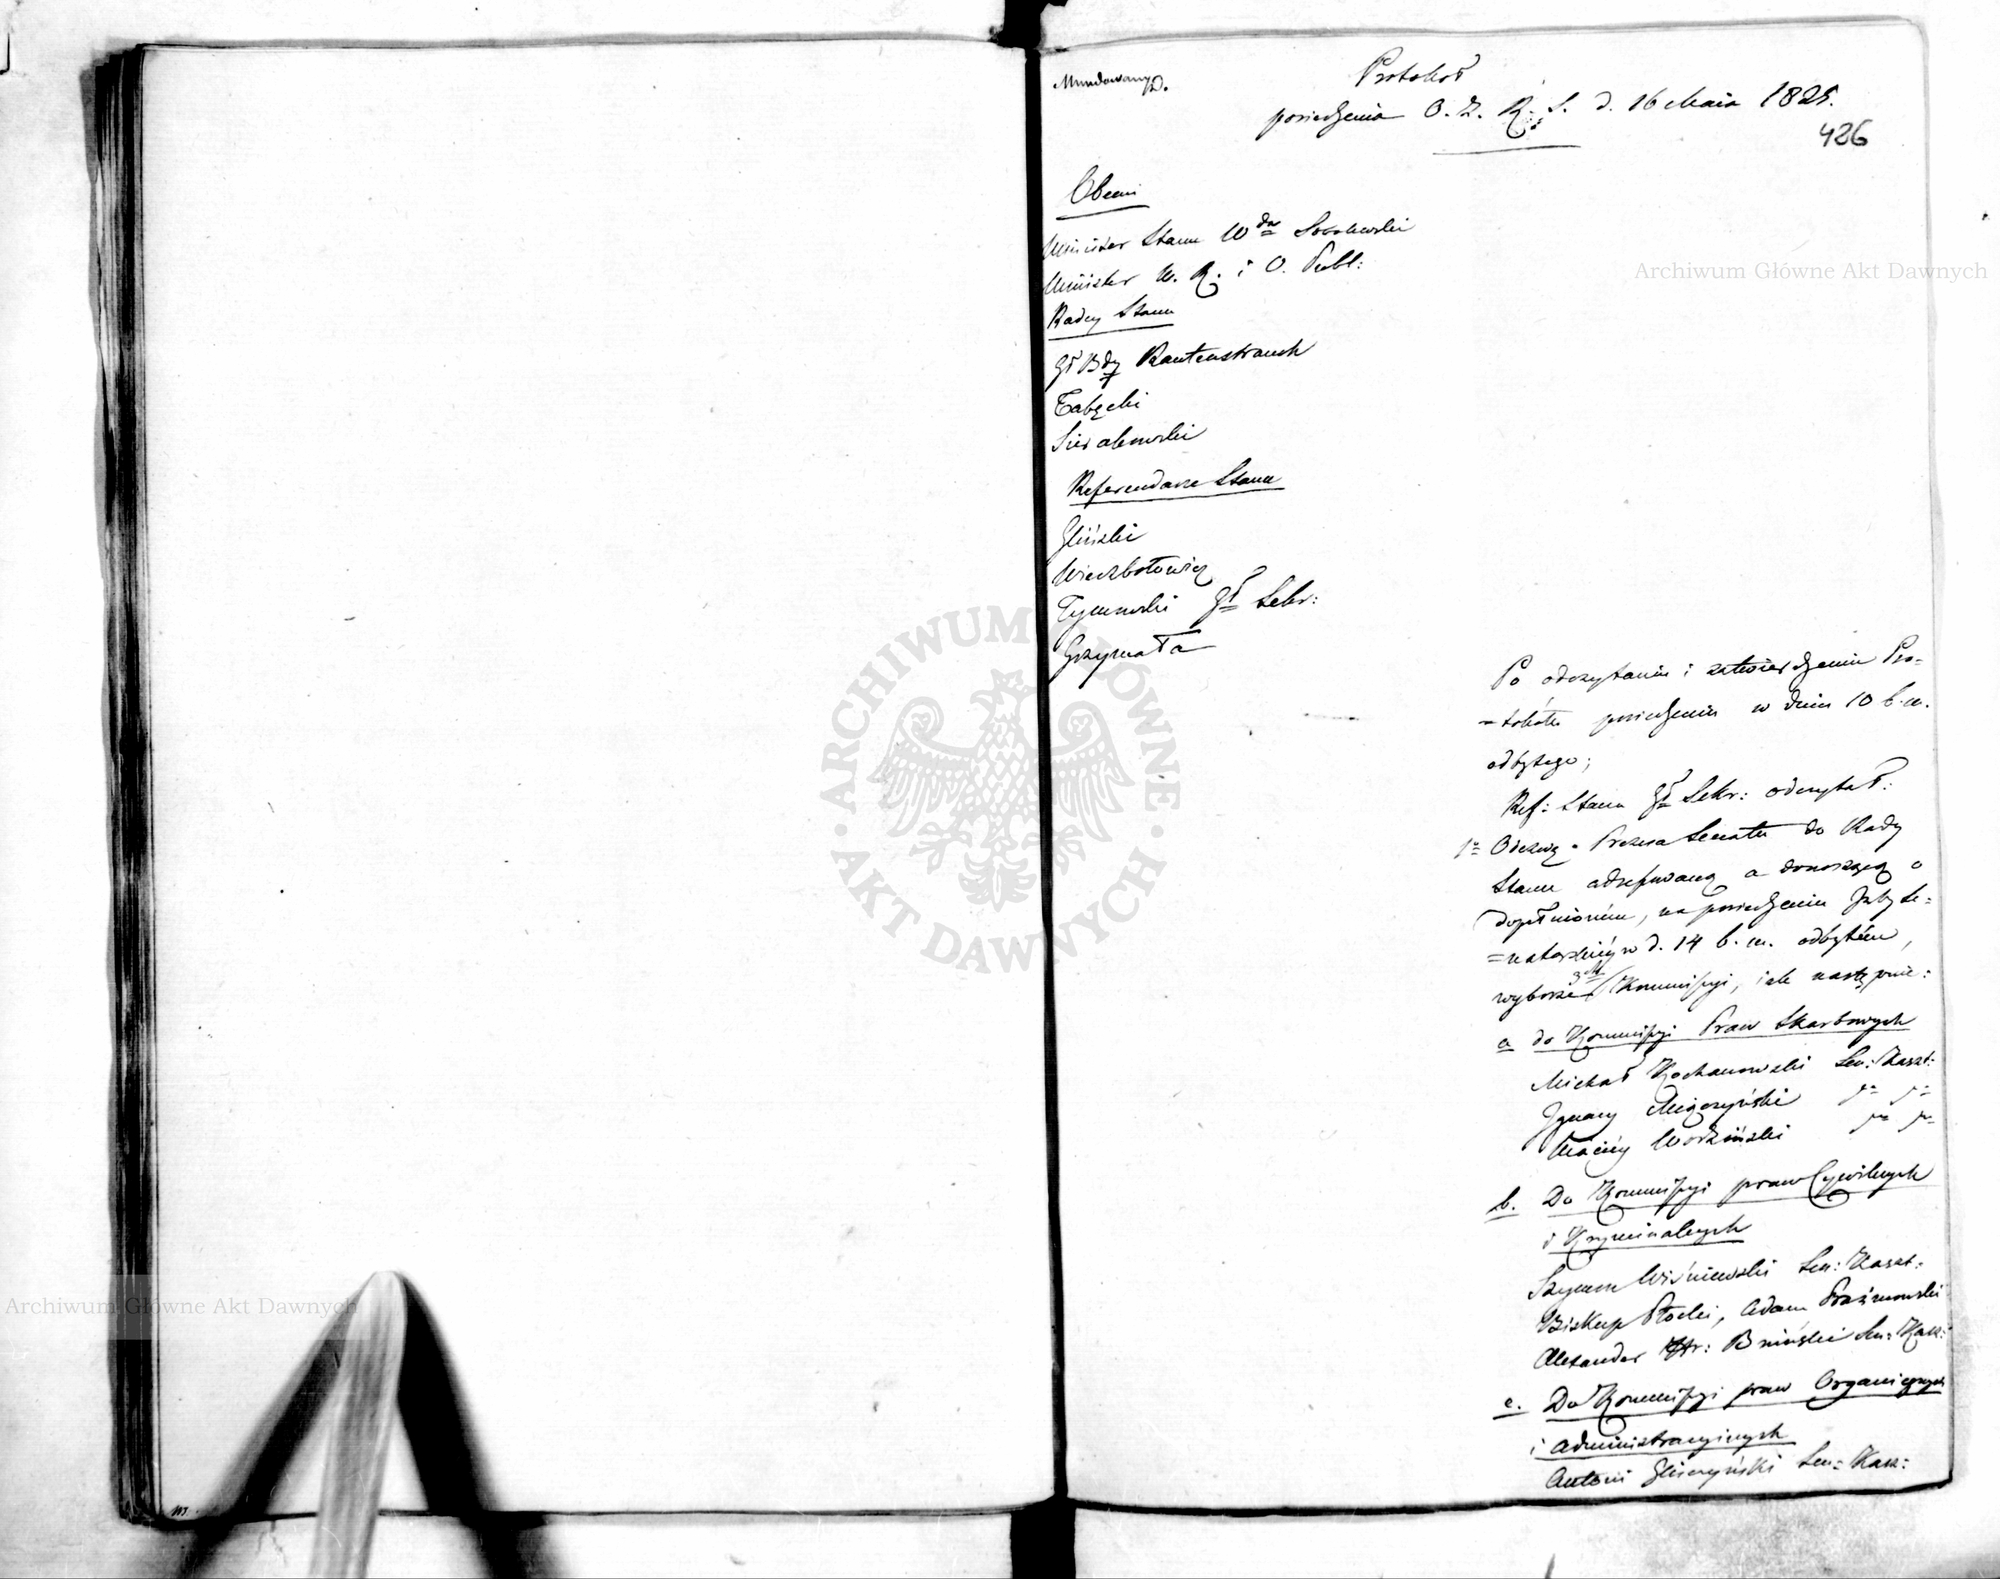 Mundowany D.
Protokoł
posiedzenia O. Z. R. S. d. 16 Maia 1825.
426
Obecni
Minister Stanu Wda Sobolewski
Minister W. R. i O. Publ:
Radcy Stanu
Gł Bdy Rautenstrauch
Tabęcki
Sierakowski
Referendarze Stanu
Gliński
Wierzbołowicz
Tymowski Gł Sekr:
Grzymała
Po odczytaniu i zatwierdzeniu Pro=
=tokółu posiedzenia w dniu 10 b. m.
odbytego;
Ref: Stanu Gł Sekr: odczytał:
1o Odezwę Prezesa Senatu do Rady
Stanu adressowaną a donoszącą o
dopełnionym, na posiedzeniu Izby Se=
=natorskiéy w d. 14 b. m. odbytém,
wyborze 3ch Kommissyi, iak następuie:
a do Kommissyi Praw Skarbowych
Michał Kochanowski Sen: Kaszt:
Ignacy Miączyński
Maciéy Wodziński
b. Do Kommissyi praw Cywilnych
i Kryminalnych
Szymon Wiśniewski Sen: Kaszt:
Biskup Płocki, Adam Prażmowski
Alexander Hr: Bniński Sen: Kasz:
c. Do Kommissyi praw Organicznych
i Administracyinych
Antoni Gliszczyński Sen: Kasz:
Archiwum Główne Akt Dawnych
Archiwum Główne Akt Dawnych
ARCHIWUM GŁÓWNE · AKT DAWNYCH ·